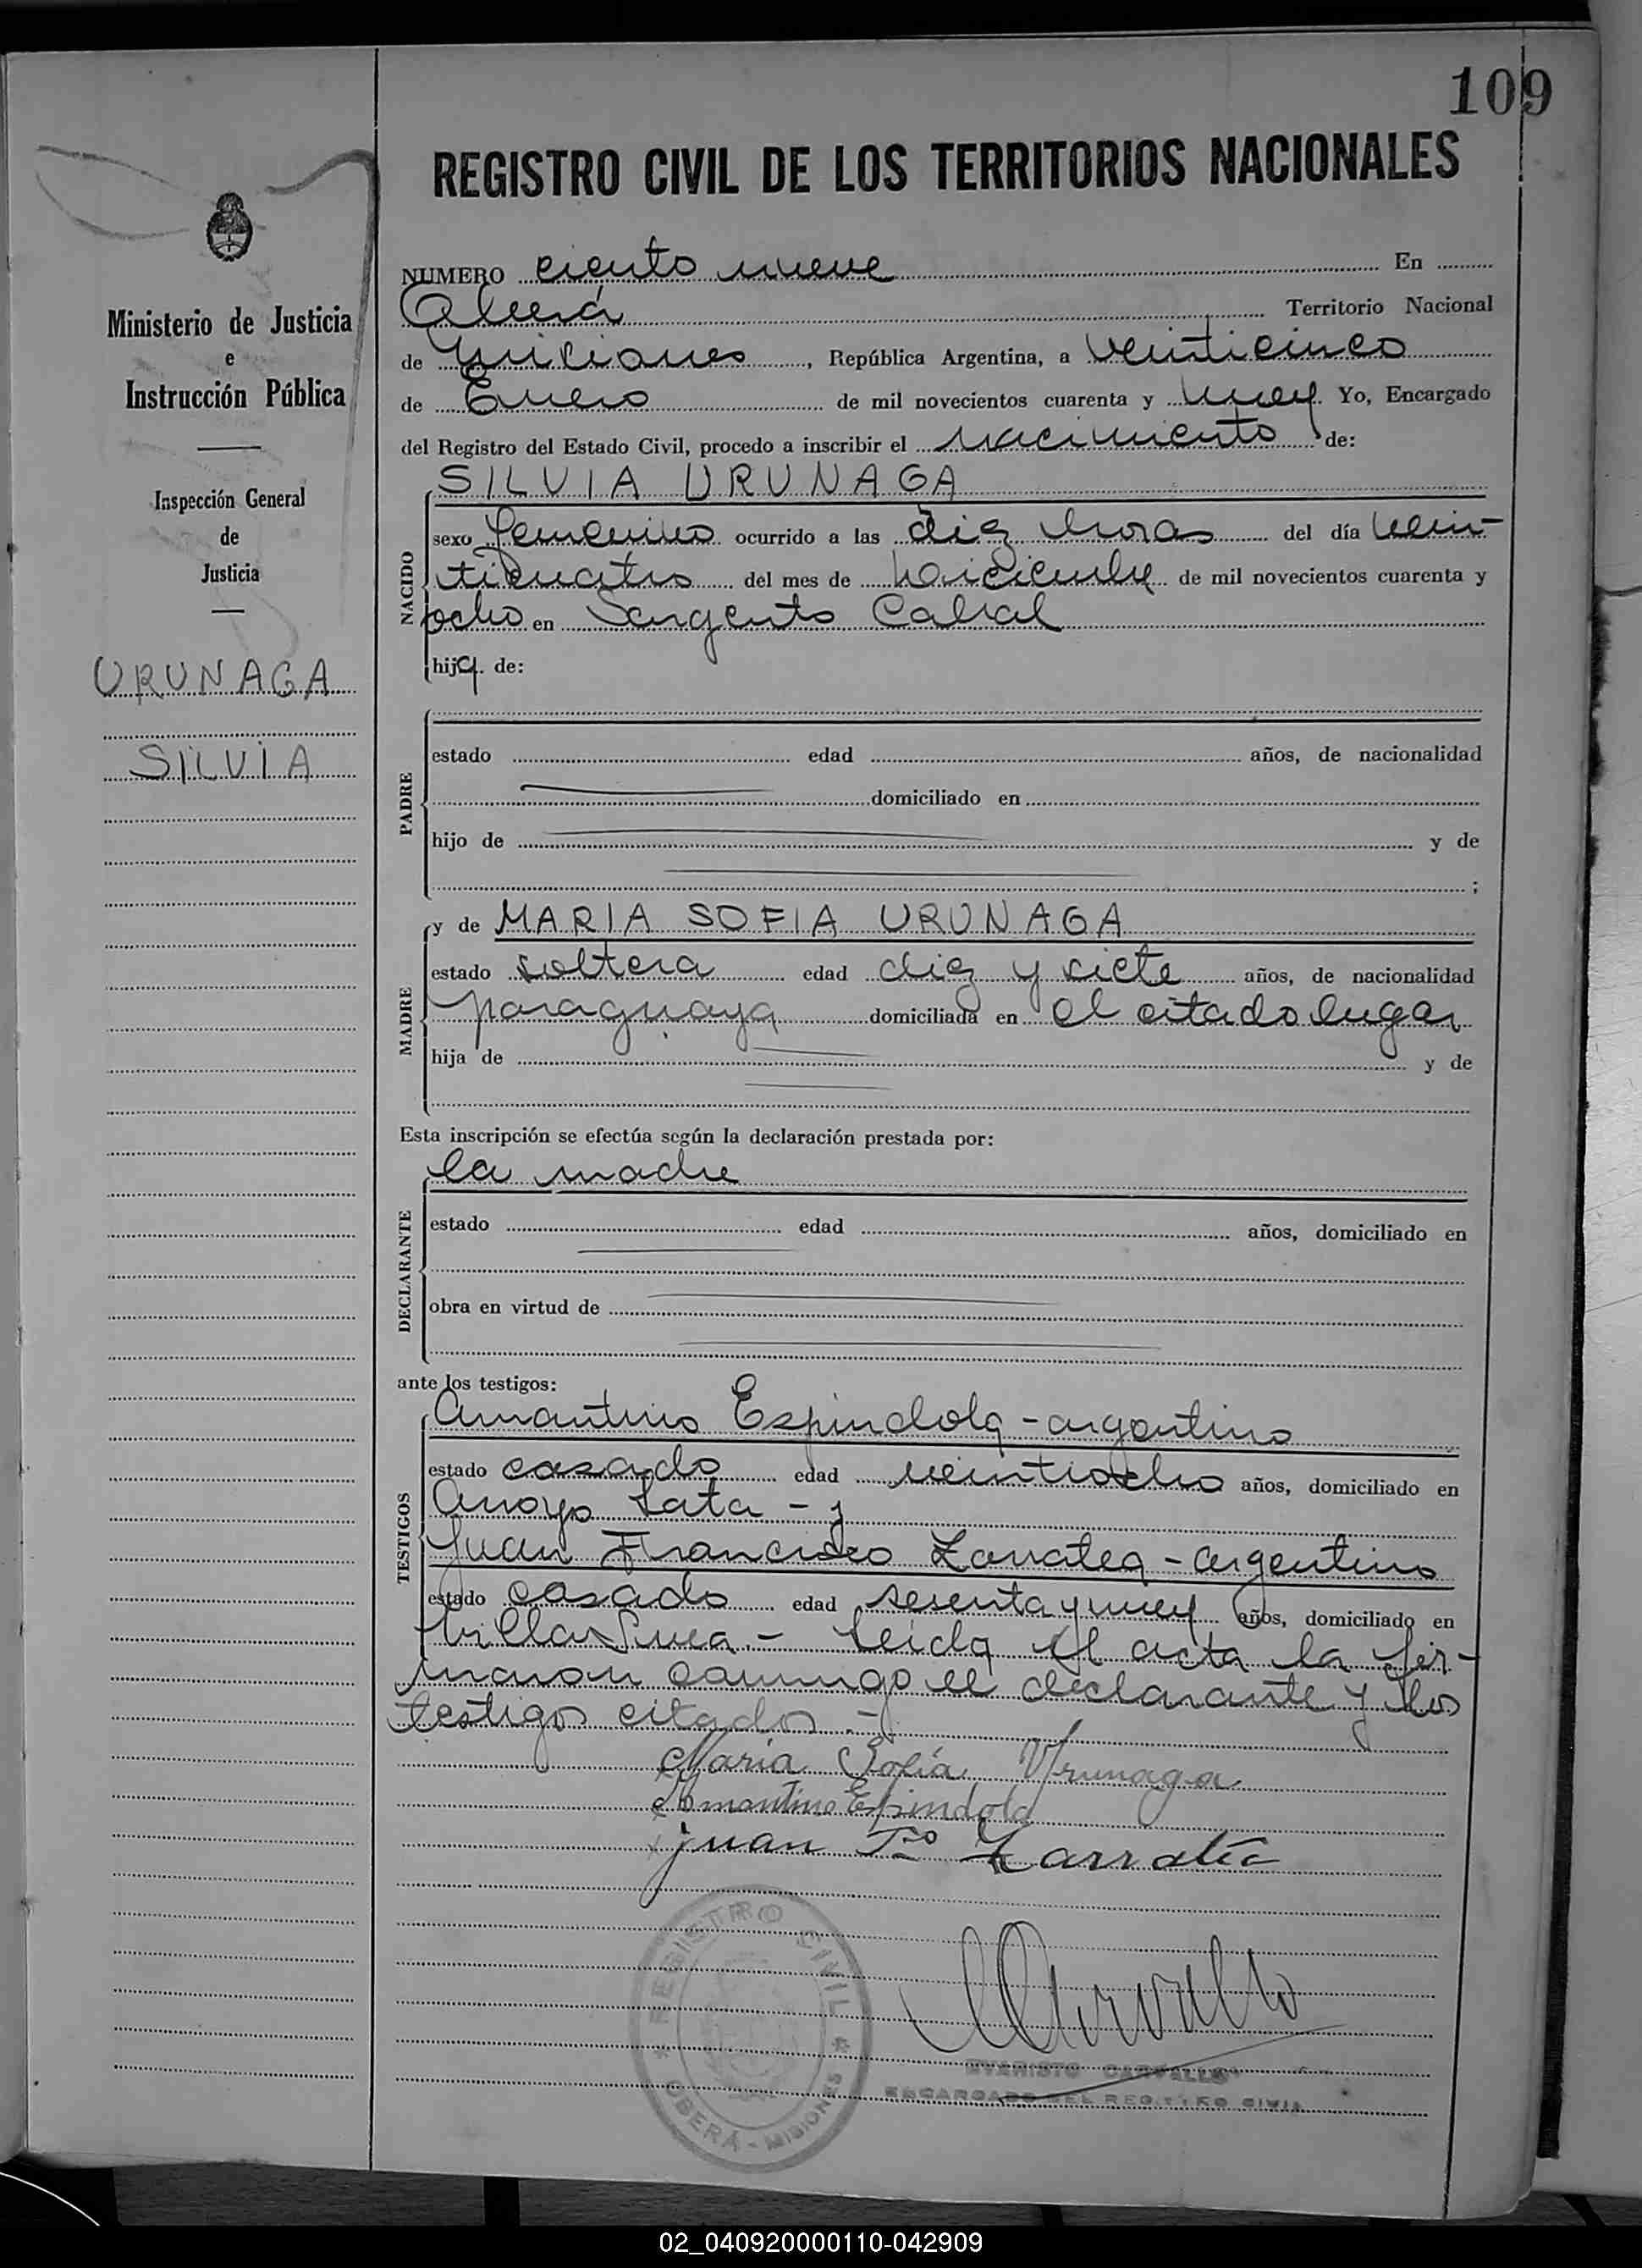 109
REGISTRO CIVIL DE LOS TERRITORIOS NACIONALES
Ministerio de Justicia
e
Instrucción Pública
Inspección General
de
Justicia
URUNAGA
SILVIA
NUMERO ciento nueve En
Oberá Territorio Nacional
de Misiones, República Argentina, a veinticinco
de Enero de mil novecientos cuarenta y nueve Yo, Encargado
del Registro del Estado Civil, procedo a inscribir el nacimiento de:
NACIDO
SILVIA URUNAGA
sexo femenino ocurrido a las diez horas del día vein-
ticuatro del mes de Diciembre de mil novecientos cuarenta y
ocho en Sargento Cabral
hija de:
PADRE
estado edad años, de nacionalidad
domiciliado en
hijo de y de
;
MADRE
y de MARIA SOFIA URUNAGA
estado soltera edad diez y siete años, de nacionalidad
paraguaya domiciliada en el citado lugar
hija de y de
Esta inscripción se efectúa según la declaración prestada por:
DECLARANTE
la madre
estado edad años, domiciliado en
obra en virtud de
ante los testigos:
TESTIGOS
Amantino Espindola - argentino
estado casado edad veintiocho años, domiciliado en
Arroyo Tata - y
Juan Francisco Zarratea - argentino
estado casado edad sesenta y nueve años, domiciliado en
Villa Svea. - Leida el acta la fir-
maron conmigo el declarante y los
testigos citados. -
Maria Sofía Urunaga
Amantino Espindola
Juan Fco Zarratéa
REGISTRO CIVIL
OBERÁ - MISIONES
EVARISTO CARVALLO
ENCARGADO DEL REGISTRO CIVIL
02_040920000110-042909